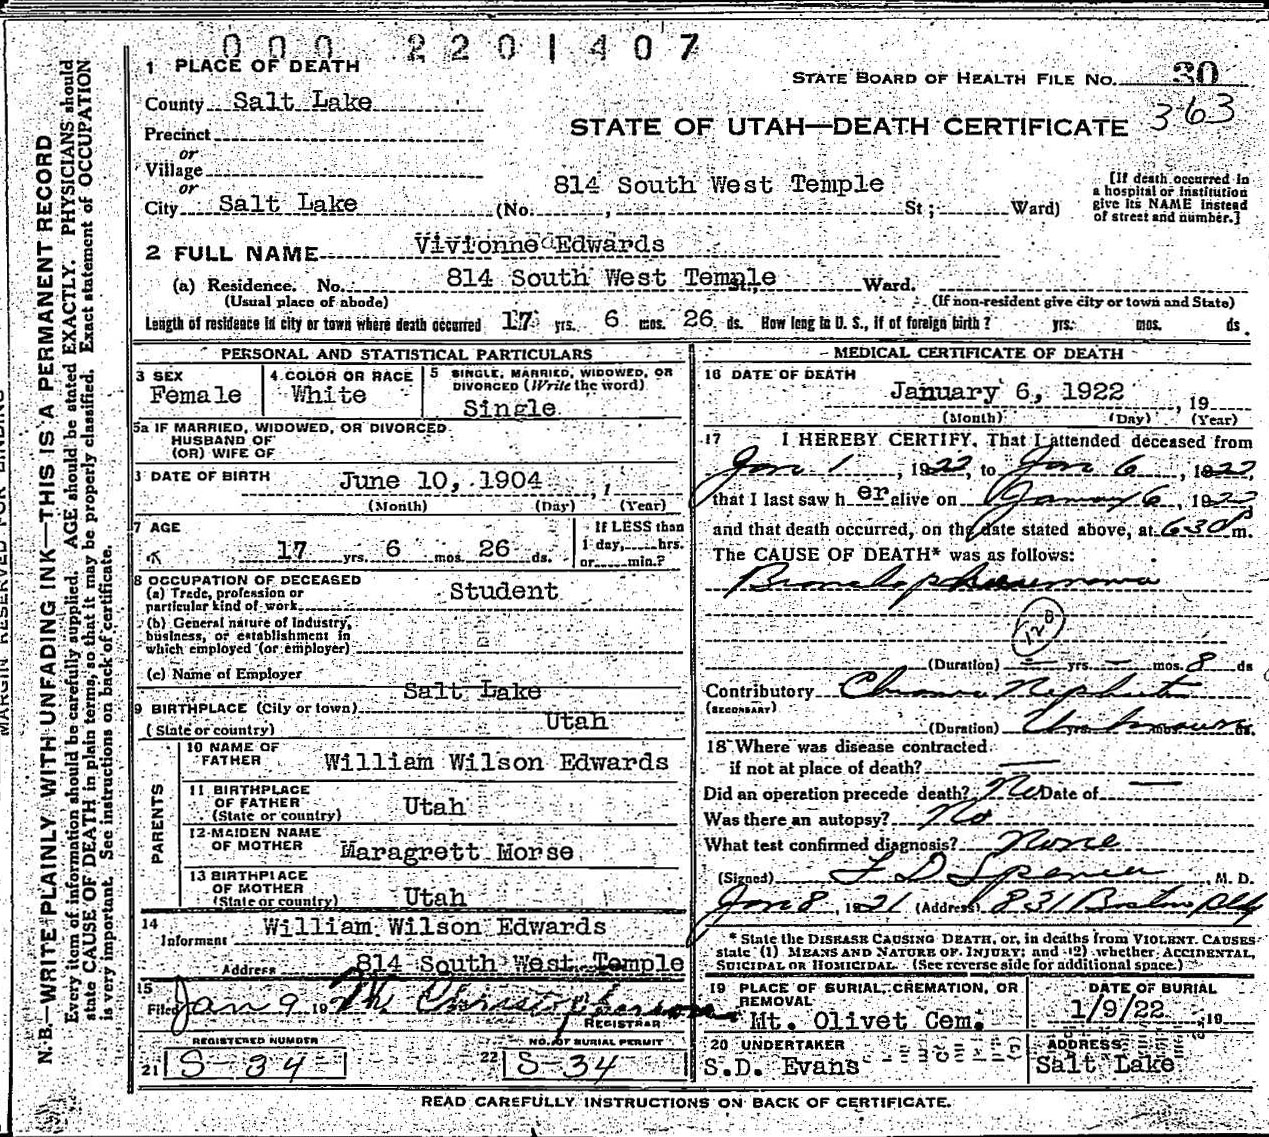 000 2201407
1 PLACE OF DEATH
STATE BOARD OF HEALTH FILE NO. 30
363
County Salt Lake
STATE OF UTAH—DEATH CERTIFICATE
Precinct
or
Village
or
City Salt Lake (No. 814 South West Temple , St ; Ward)
[If death occurred in
a hospital or institution
give its NAME instead
of street and number.]
2 FULL NAME Vivionne Edwards
(a) Residence. No. 814 South West Temple St., Ward.
(Usual place of abode) (If non-resident give city or town and State)
Length of residence in city or town where death occurred 17 yrs. 6 mos. 26 ds. How long in U. S., if of foreign birth ? yrs. mos. ds.
PERSONAL AND STATISTICAL PARTICULARS
3 SEX
Female
4 COLOR OR RACE
White
5 SINGLE, MARRIED, WIDOWED, OR
DIVORCED (Write the word)
Single
5a IF MARRIED, WIDOWED, OR DIVORCED
HUSBAND OF
(OR) WIFE OF
DATE OF BIRTH June 10, 1904 , 1
(Month) (Day) (Year)
7 AGE
17 yrs. 6 mos. 26 ds.
If LESS than
1 day, hrs.
or min.?
8 OCCUPATION OF DECEASED
(a) Trade, profession or
particular kind of work Student
(b) General nature of Industry,
business, or establishment in
which employed (or employer)
(c) Name of Employer
9 BIRTHPLACE (City or town) Salt Lake
(State or country) Utah
PARENTS
10 NAME OF
FATHER William Wilson Edwards
11 BIRTHPLACE
OF FATHER
(State or country) Utah
12 MAIDEN NAME
OF MOTHER Maragrett Morse
13 BIRTHPLACE
OF MOTHER
(State or country) Utah
14
Informant William Wilson Edwards
Address 814 South West Temple
15
Filed Jan 9 19 Christopherson
REGISTRAR
REGISTERED NUMBER
21 S-34
NO. OF BURIAL PERMIT
22 S-34
MEDICAL CERTIFICATE OF DEATH
16 DATE OF DEATH
January 6, 1922 , 19
(Month) (Day) (Year)
17 I HEREBY CERTIFY, That I attended deceased from
Jan 1 , 1922, to Jan 6 , 1922,
that I last saw her alive on January 6, 1922
and that death occurred, on the date stated above, at 630 P m.
The CAUSE OF DEATH* was as follows:
Bronchopneumonia
120
(Duration) — yrs. — mos. 8 ds
Contributory Chronic Nephritis
(SECONDARY)
(Duration) Unknown yrs. mos. ds.
18 Where was disease contracted
if not at place of death? —
Did an operation precede death? No Date of —
Was there an autopsy? No
What test confirmed diagnosis? None
(Signed) L D Spencer , M. D.
Jan 8 , 1921 (Address) 831 Boston Bldg
* State the DISEASE CAUSING DEATH, or, in deaths from VIOLENT CAUSES
state (1) MEANS AND NATURE OF INJURY; and (2) whether ACCIDENTAL,
SUICIDAL OR HOMICIDAL. (See reverse side for additional space.)
19 PLACE OF BURIAL, CREMATION, OR
REMOVAL
Mt. Olivet Cem.
DATE OF BURIAL
1/9/22 , 19
20 UNDERTAKER
S.D. Evans
ADDRESS
Salt Lake
READ CAREFULLY INSTRUCTIONS ON BACK OF CERTIFICATE.
MARGIN RESERVED FOR BINDING
N. B.—WRITE PLAINLY WITH UNFADING INK—THIS IS A PERMANENT RECORD
Every item of information should be carefully supplied. AGE should be stated EXACTLY. PHYSICIANS should
state CAUSE OF DEATH in plain terms, so that it may be properly classified. Exact statement of OCCUPATION
is very important. See instructions on back of certificate.